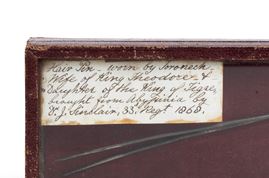 Hair Pin - worn by Soronech
Wife of King Theodore &
Daughter of the King of Tigre,
brought from Abyssinia by
J. Sinclair, 33. Regt. 1868.